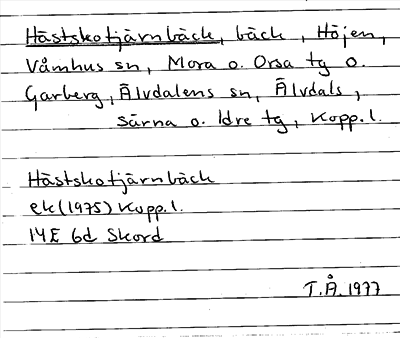 Hästskotjärnbäck, bäck, Höjen,
Våmhus sn, Mora o. Orsa tg o.
Garberg, Älvdalens sn, Älvdals,
Särna o. Idre tg, Kopp.l.
Hästskotjärnbäck
ek (1975) Kopp.l.
14E 6d Skord
T.Å. 1977